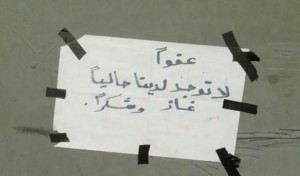 عفواً
لا توجد لدينا حالياً
غاز وشكراً.